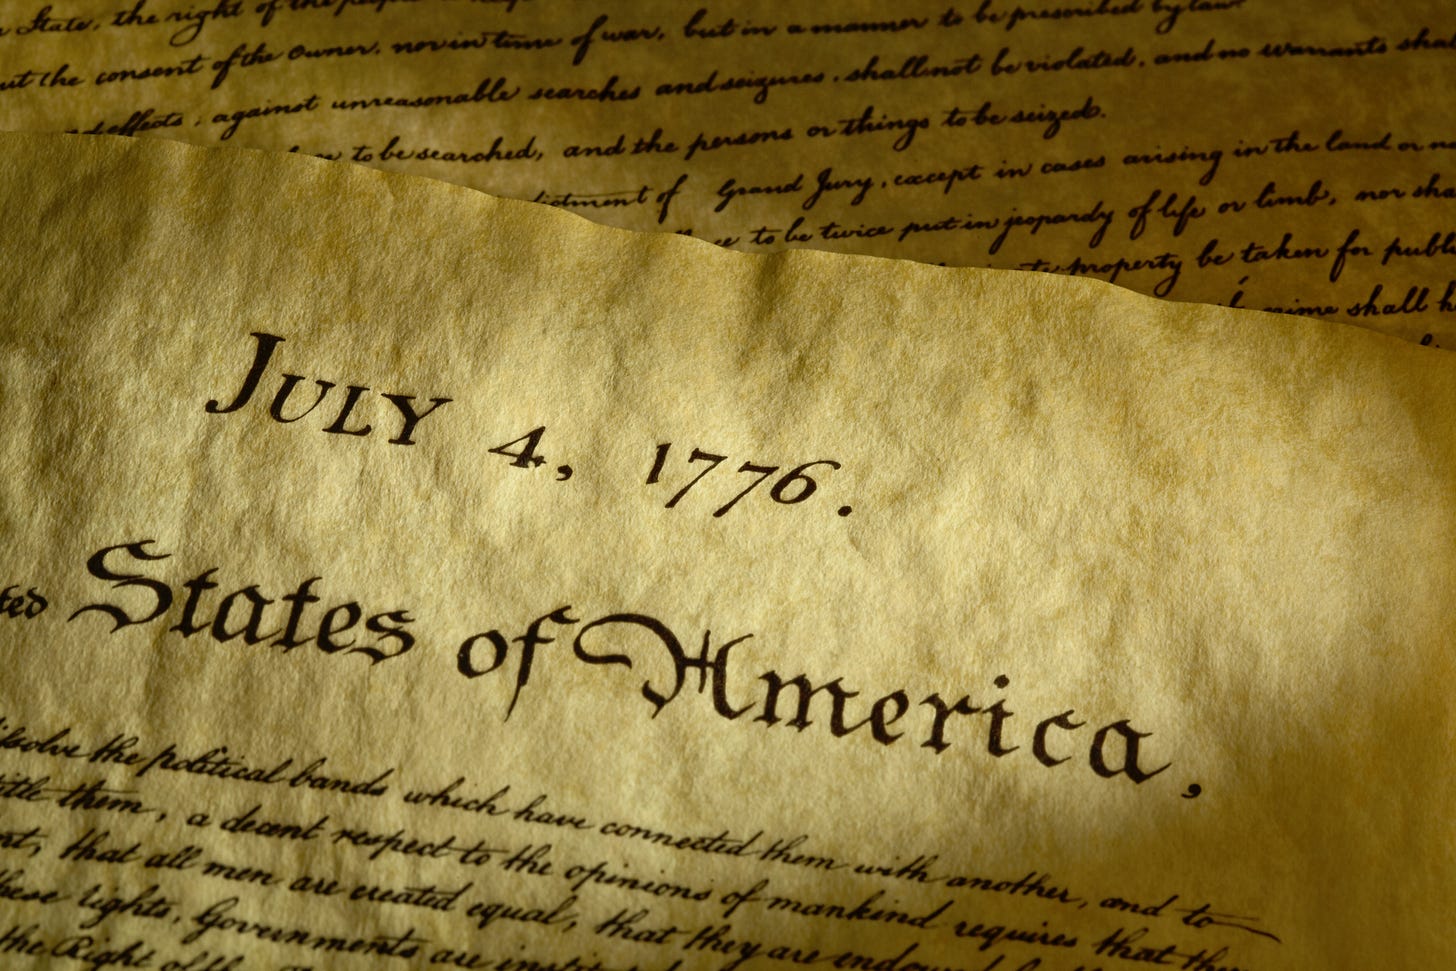 State, the right of the people
out the consent of the Owner, nor in time of war, but in a manner to be prescribed by law.
effects, against unreasonable searches and seizures, shall not be violated, and no warrants shall
to be searched, and the persons or things to be seized.
Grand Jury, except in cases arising in the land or na
to be twice put in jeopardy of life or limb, nor shall
property be taken for publ
crime shall h
JULY 4, 1776.
ted States of America,
issolve the political bands which have connected them with another, and to
itle them, a decent respect to the opinions of mankind requires that the
nt, that all men are created equal, that they are endowed
these rights, Governments are instit
the Right of the